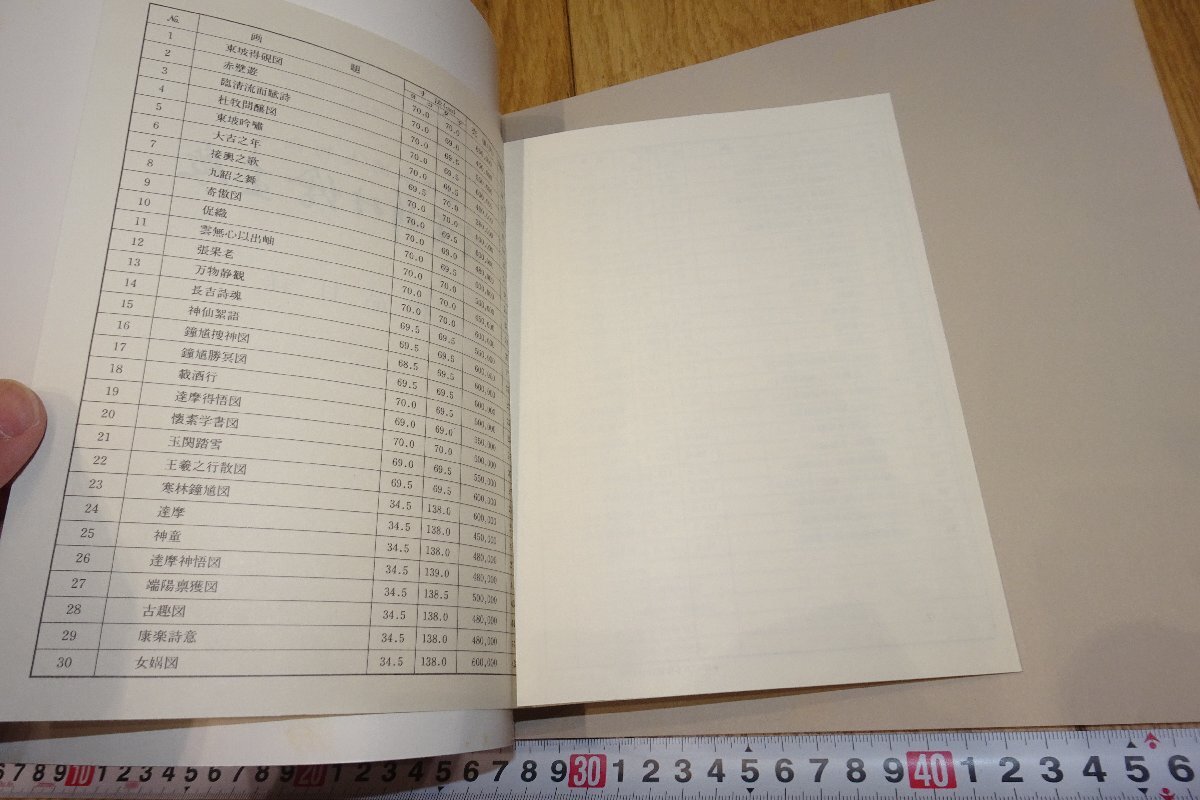 № 画題 寸法(cm)
1 東坡得硯図 70.0 70.0
2 赤壁遊 70.0 69.5
3 臨清流而賦詩 70.0 69.5
4 杜牧問醸図 70.0 70.0
5 東坡吟嘯 70.0 69.5
6 大古之年 69.5 70.0
7 接輿之歌 70.0 70.0
8 九韶之舞 70.0 69.5
9 寄傲図 70.0 69.0
10 促織 70.0 69.5
11 雲無心以出岫 70.0 70.0
12 張果老 70.0 70.0
13 万物静観 70.0 70.0
14 長吉詩魂 69.5 69.5
15 神仙絮語 69.5 69.5
16 鐘馗捜神図 68.5 69.5
17 鐘馗勝冥図 69.5 69.5
18 載酒行 70.0 69.5
19 達摩得悟図 69.0 69.0
20 懐素学書図 70.0 70.0 500,000
21 玉関踏雪 69.0 69.5 550,000
22 王羲之行散図 69.5 69.5 600,000
23 寒林鐘馗図 34.5 138.0 600,000
24 達摩 34.5 138.0 450,000
25 神童 34.5 138.0 480,000
26 達摩神悟図 34.5 139.0 480,000
27 端陽禀獲図 34.5 138.5 500,000
28 古趣図 34.5 138.0 480,000
29 康楽詩意 34.5 138.0 480,000
30 女媧図 34.5 138.0 600,000
6 7 8 9 10 1 2 3 4 5 6 7 8 9 20 1 2 3 4 5 6 7 8 9 30 1 2 3 4 5 6 7 8 9 40 1 2 3 4 5 6